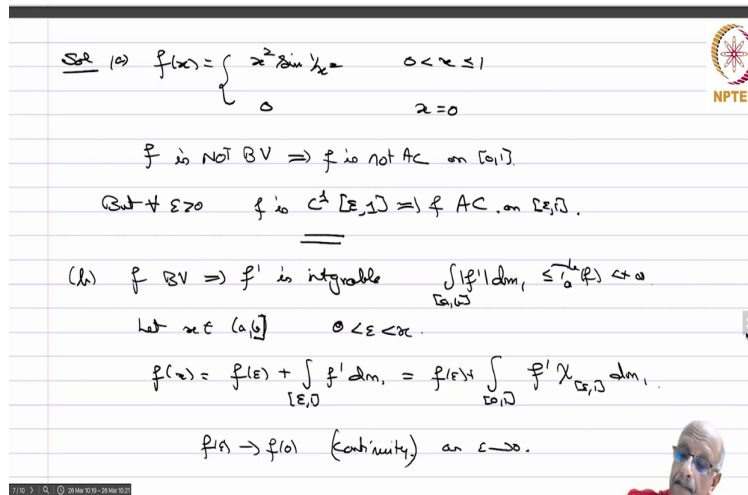 Sol (a) f(x) = { x² sin 1/x² 0 < x ≤ 1
0 x = 0
NPTEL
f is NOT BV ⇒ f is not AC on [0,1].
But ∀ ε>0 f is C¹ [ε,1] ⇒ f AC. on [ε,1].
(b) f BV ⇒ f' is integrable ∫[a,b] |f'| dm₁ ≤ Tₐᵇ(f) < +∞
Let x ∈ (a,b] 0 < ε < x.
f(x) = f(ε) + ∫[ε,1] f' dm₁ = f(ε) + ∫[0,1] f' χ[ε,1] dm₁.
f(ε) → f(0) (continuity) as ε → 0.
7/10 26 Mar 10:19 - 26 Mar 10:21